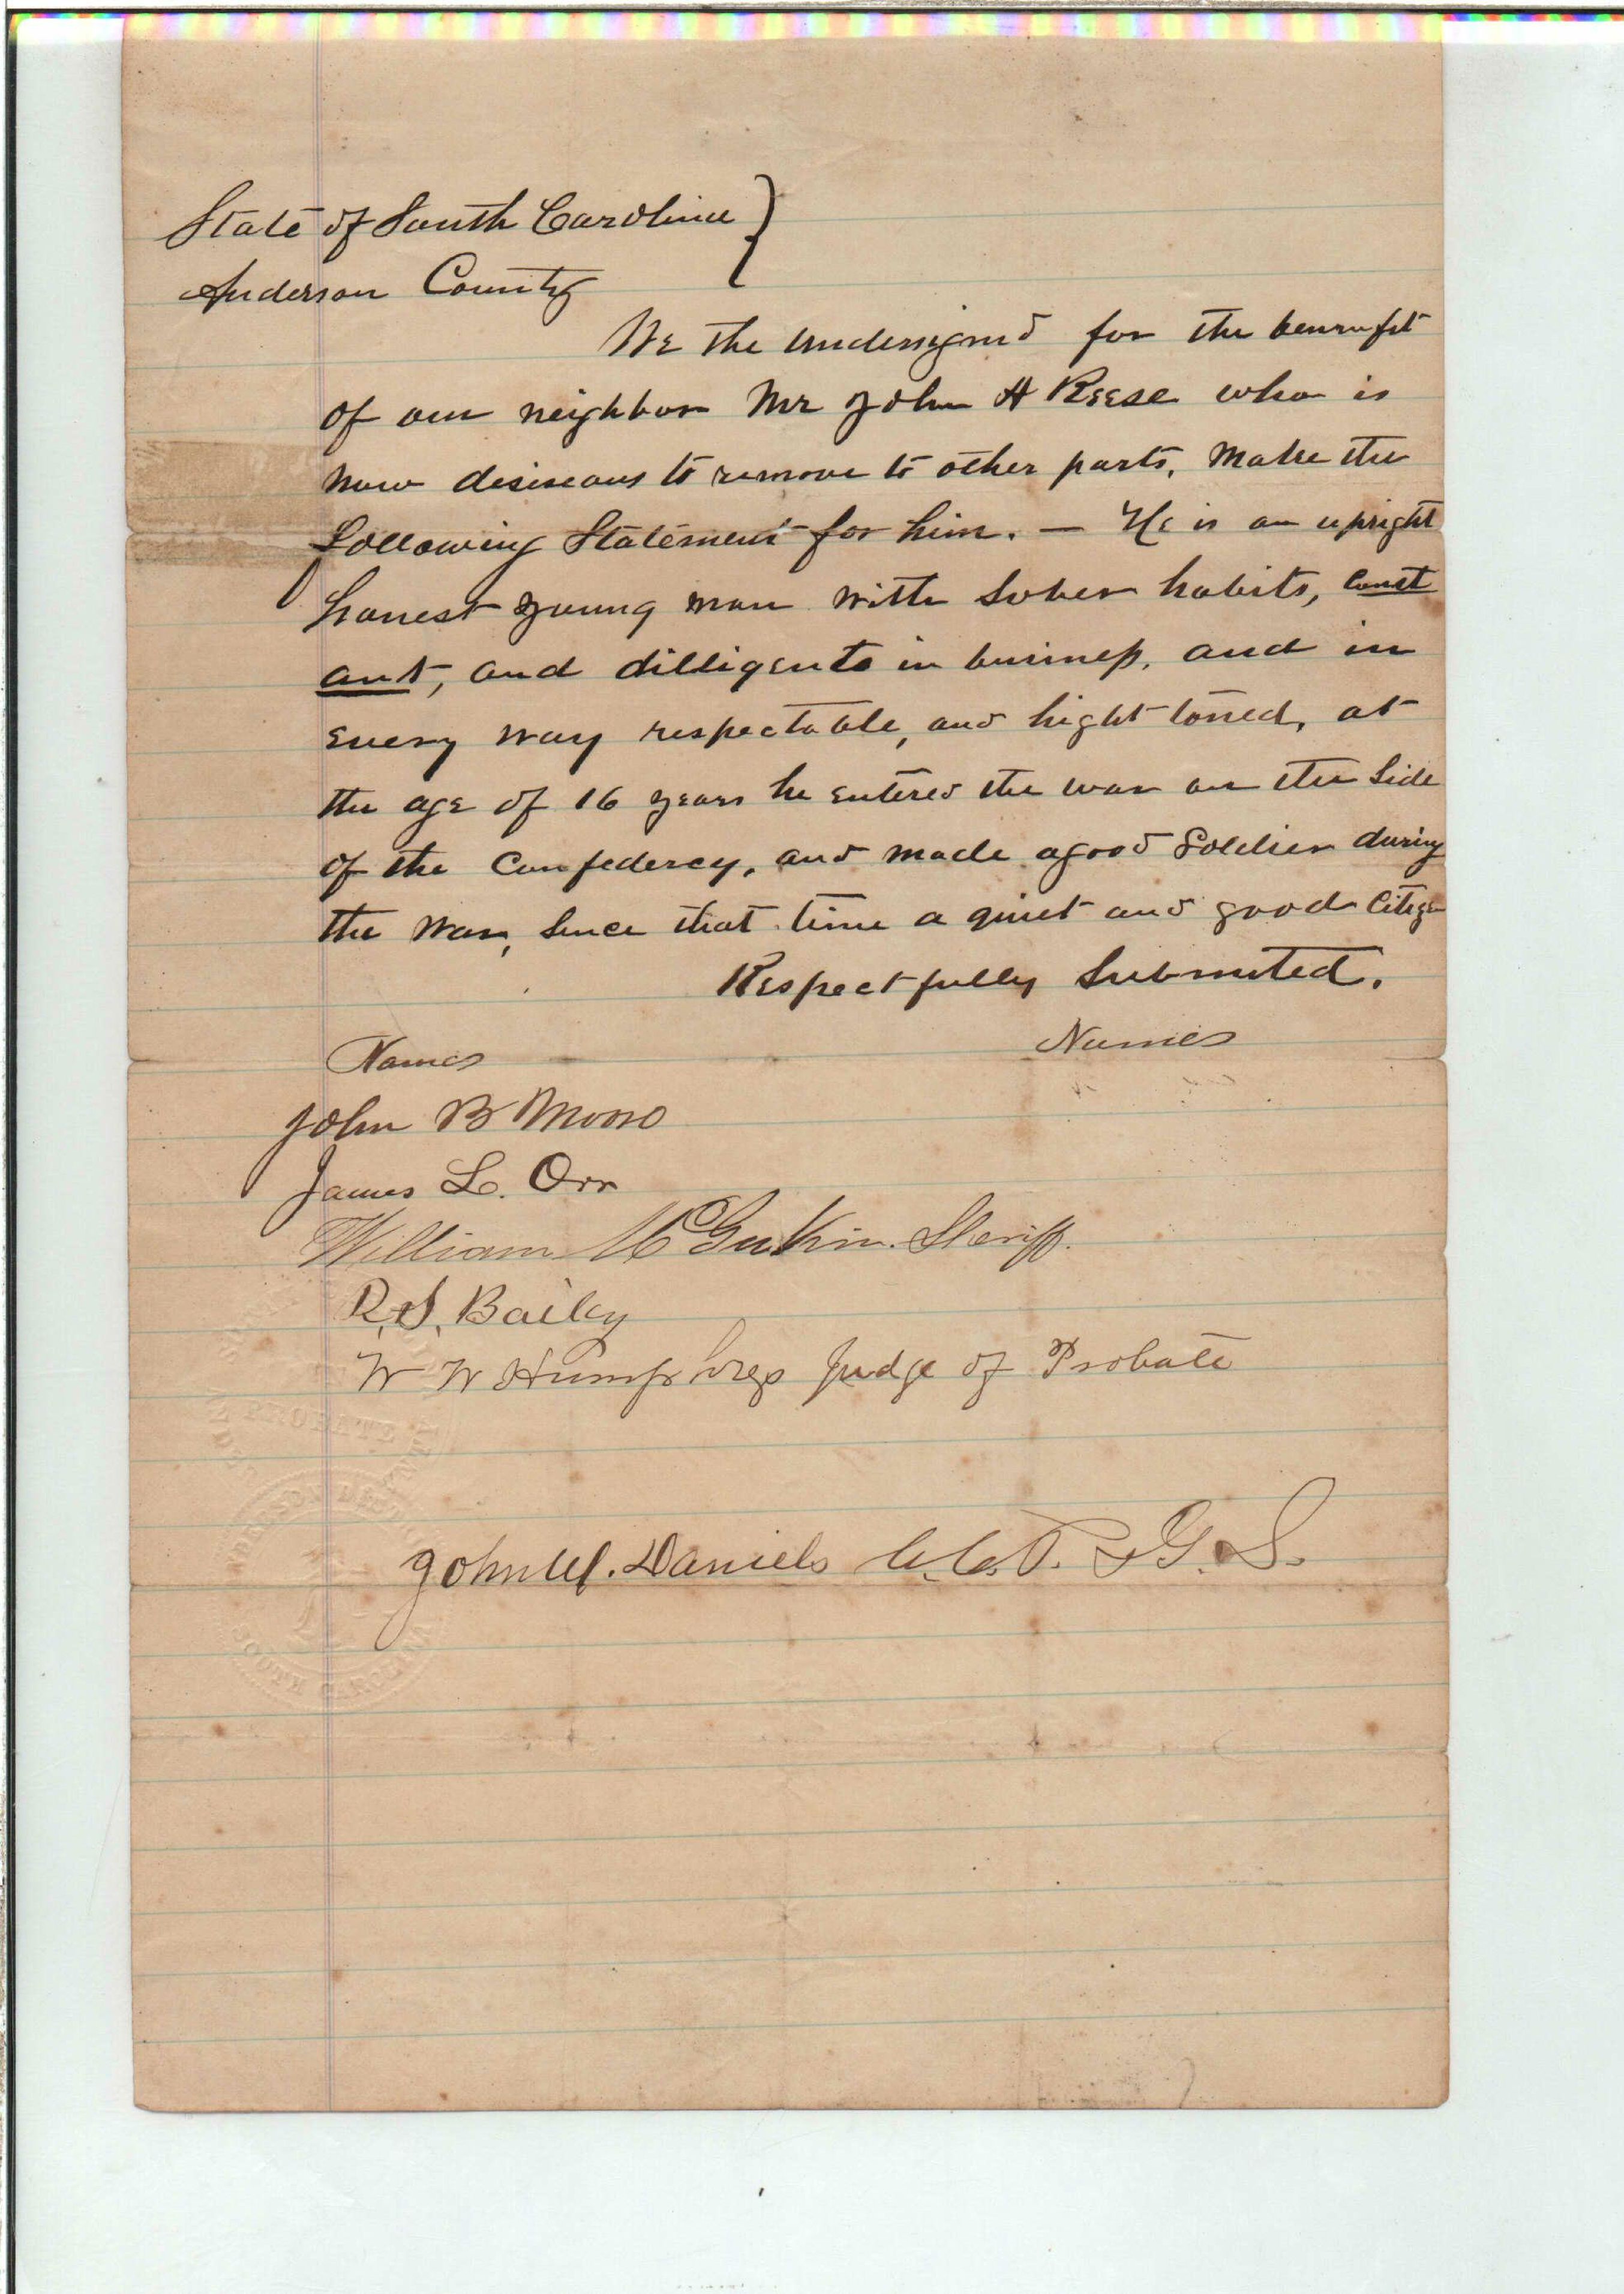 State of South Carolina }
Anderson County
We the undersignd for the benefit
of our neighbor Mr John H Reese who is
now desireous to remove to other parts, make the
following Statement for him. — He is an upright
honest young man with sober habits, const
ant, and dilligente in business, and in
every way respectable, and hight toned, at
the age of 16 years he entered the war on the Side
of the Confedercy, and made a good Soldier during
the war, Since that time a quiet and good Citizen
Respectfully Submited.
Names Names
John B Moore
James L. Orr
William McGukin. Sheriff.
R. S. Bailey
W W Humphreys Judge of Probate
PROBATE
John W. Daniels C. C. P. & G. S.
ANDERSON DISTRICT
SOUTH CAROLINA